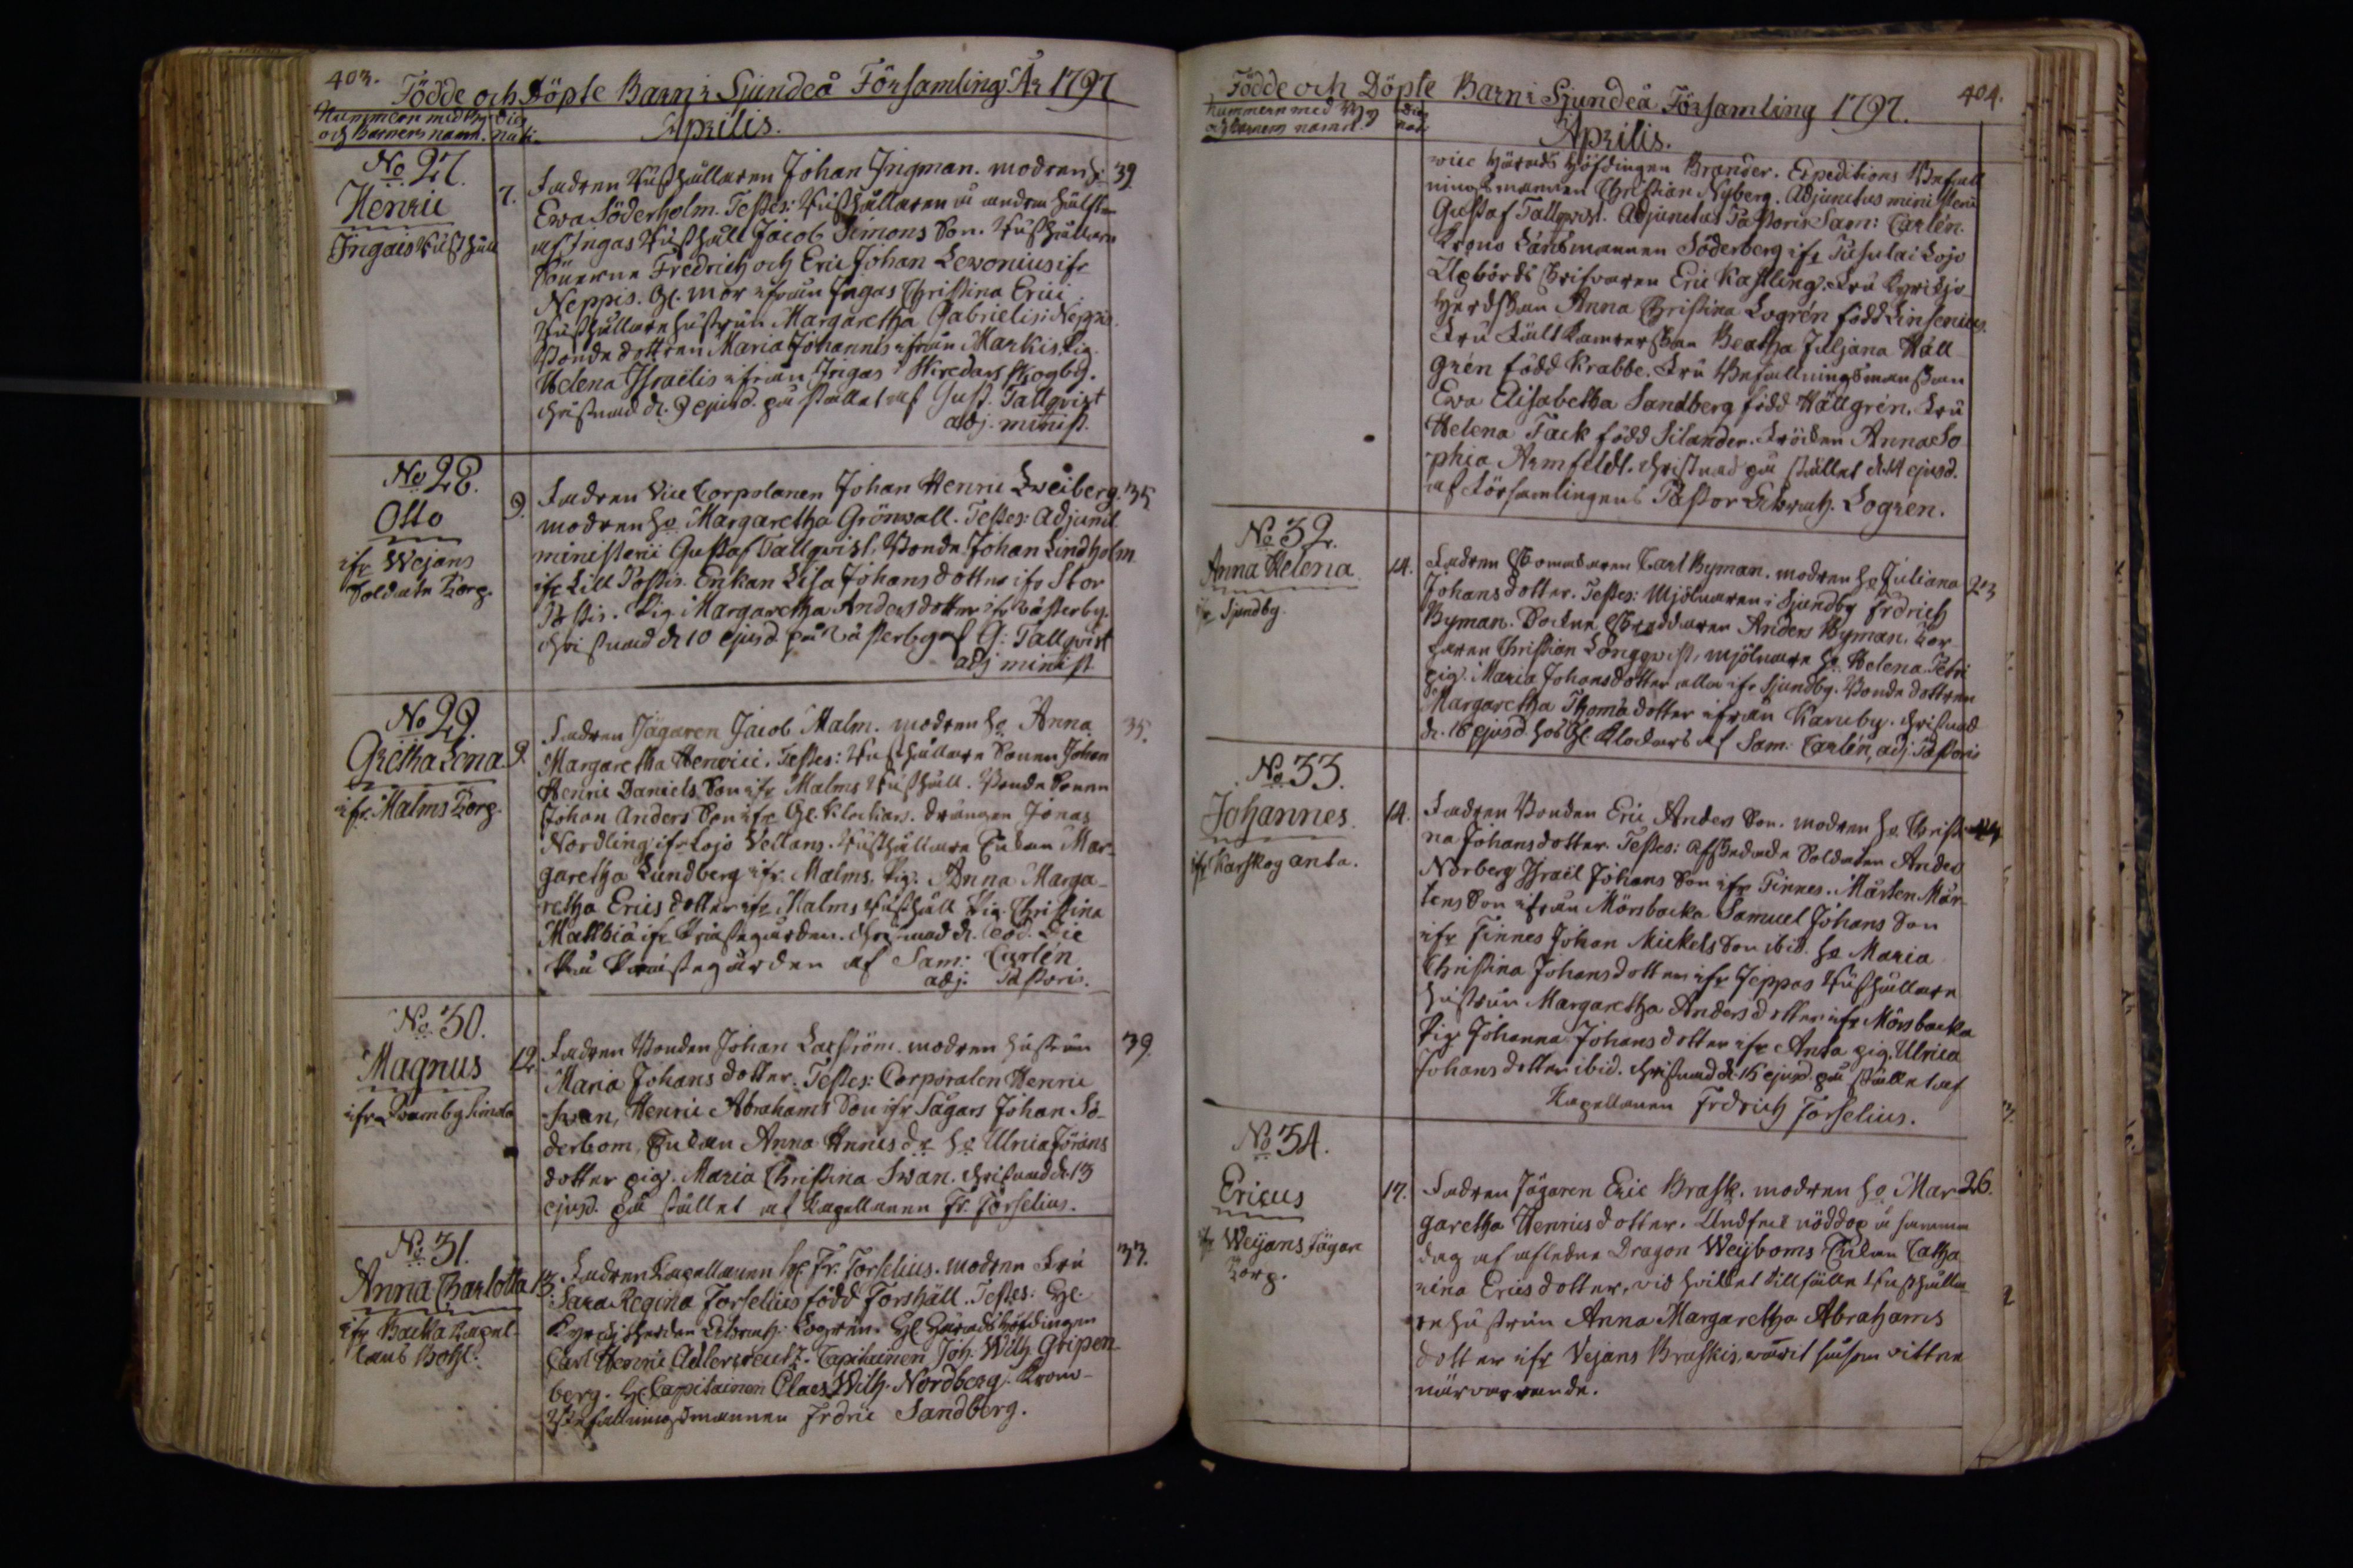 403.
Födde och Döpte Barn i Sjundeå Församling År 1797
Nummern med By
och Barnens namn.
Dies
nati.
Aprilis.
No 27.
Henric
Ingais Rusthåll
7.
39
Fadren Rusthållaren Johan Ingman. modren h:
Ewa Söderholm. Testes: Rusthållaren å andra hälften
af Ingas Rusthåll Jacob Simons Son. Rusthållare
Sönerne Fredrich och Eric Johan Lewonius ifr
Neppis. Gl. mor ifrån Ingas Christina Erici
Rusthållare hustrun Margaretha Gabrielis i Neppis.
Bonde dottren Maria Johannis ifrån Markis. Pig.
Helena Israelis ifrån Ingas Skogby.
christnad d. 9 ejusd. på stället af Gust. Tallqvist
adj. minist.
No 28.
Otto
ifr Wejans
Soldate Torp.
9.
35
Fadren Vice Corporalen Johan Henric Sweiberg.
modren ho Margaretha Grönwall. Testes: Adjunct.
ministerii Gustaf Tallqvist, Bonde Johan Lindholm
ifr Lill Påstis. Enkan Lisa Johansdotter ifr Stor
Påstis. Pig. Margaretha Andersdotter ifr Västerby.
christnad d 10 ejusd. på Västerby af G: Tallqvist
adj minist
No 29.
Gretha Lena
ifr. Malms Torp.
9.
35.
Fadren Jägaren Jacob Malm. modren ho Anna
Margaretha Henrici. Testes: Rusthållare Sonen Johan
Henric Daniels Son ifr Malms Rusthåll. Bonde Sonen
Johan Anders Son ifr Gl. Klockars. drängen Jonas
Nordling ifr Lojo Vellans. Rusthållare Enkan Mar-
garetha Lundberg ifr Malms. Pig. Anna Marga-
retha Ericsdotter ifr Malms Rusthåll Pig. Christina
Matthiæ ifr Prästegården. Christnad d. eod. die
på Prästegården af Sam: Carlén
adj. Pastoris.
No 30.
Magnus
ifr Svamby Simola
12.
39.
Fadren Bonden Johan Lagström. modren hustrun
Maria Johans dotter. Testes: Corporalen Henric
Swan, Henric Abrahams Son ifr Sågars Johan Sö-
derbom, Enkan Anna Henrics dr ho Ulrica Jörans
dotter pig. Maria Christina Swan. christnad d. 13
ejusd. på stället af Kapellanen Fr. Forselius.
No 31.
Anna Charlotta
ifr Backa Kapel-
lans Bohl:
13.
33.
Fadren Kapellanen Hr. Fr. Forselius. modren Fru
Sara Regina Forselius född Forshäll. Testes: Hr.
Kyrckoherden Logrén. Hr Häradshöfdingen
Carl Henric Adlercreutz. Capitainen Joh. Wilh. Gripen-
berg. Hr. Capitainen Claes Wilh. Nordberg. Krono-
Befallningsmannen Frdric Sandberg.
404.
Födde och Döpte Barn i Sjundeå Församling 1797.
Nummern med By
och Barnens namn.
Dies
nati
Aprilis.
vice Härads Höfdingen Brander. Expeditions Befall
ningsmannen Christian Nyberg. Adjunctus ministerii
Gustaf Tallqvist. Adjunctus Pastoris Sam: Carlén.
Krono Länsmannen Söderberg ifr Pasulai Lojo
Uppbörds Skrifvaren Eric Kastling. Fru Kyrckjo-
Herdskan Anna Christina Logrén född Linsenius.
Fru Fält Kamrerskan Beatha Juljana Häll-
grén född Krabbe. Fru Befallningsmanskan
Ewa Elisabetha Sandberg född Hällgrén. Fru
Helena Tack född Silander. Fröken Anna So
phia Armfeldt. christnad på stället d. 14 ejusd.
af Församlingens Pastor Logrén.
No 32.
Anna Helena
ifr Sjundby.
14.
23
Fadren Skomakaren Carl Byman. modren ho Juliana
Johansdotter. Testes: Mjölnaren i Sjundby Frdrich
Byman. Socken Skräddaren Anders Byman. Tor-
paren Christian Longqvist, mjölnare ho. Helena Petri
pig. Maria Johansdotter alla ifr Sjundby. Bonde dottren
Margaretha Thomædotter ifrån Karuby. christnad
d. 16 ejusd hos Gl. Klockars af Sam. Carlén, adj. Pastoris
No 33.
Johannes.
ifr Karskog anta.
14.
44
Fadren Bonden Eric Anders Son. modren ho. Christi-
na Johansdotter. Testes: Afskedade Soldaten Anders
Norberg Israël Johans Son ifr Finnes. Mårten Mår-
tens Son ifrån Mörsbacka Samuel Johans Son
ifr Finnes Johan Mickels Son ibid. ho Maria
Christina Johansdotter ifr Jeppas Rusthållare
hustrun Margaretha Andersdotter ifr Mörsbacka
Pig. Johanna Johansdotter ifr Anta pig. Ulrica
Johansdotter ibid. christnad d. 16 ejusd. på stället af
Kapellanen Frdrich Forselius.
No 34.
Ericus
ifr Weijans Jägare
Torp.
17.
26.
Fadren Jägaren Eric Brask. modren ho Mar-
garetha Henricsdotter. Undfeck nöddop å samma
dag af afledne Dragon Weijboms Enkan Catha
rina Ericsdotter, vid hvilket tillfälle Rusthålla-
re hustrun Anna Margaretha Abrahams
dotter ifr Vejans Braskis, warit såsom vittne
närvarande.